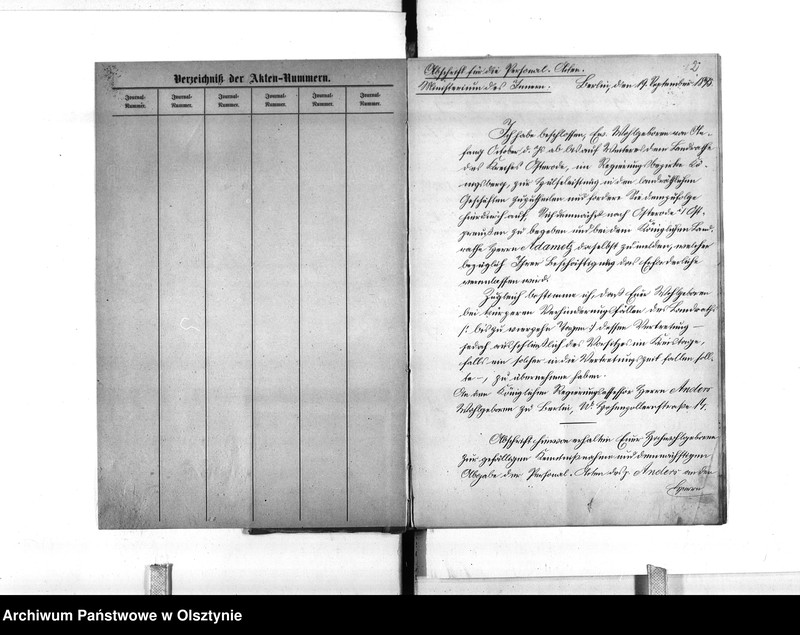 Verzeichniß der Akten-Nummern.
Journal-Nummer.
Journal-Nummer.
Journal-Nummer.
Journal-Nummer.
Journal-Nummer.
Journal-Nummer.
2
Abschrift für die Personal-Akten.
Ministerium des Innern. Berlin, den 19. September
Ich habe beschlossen, Ew. Wohlgeboren von An-
fang October d. Js. ab bis auf Weiteres dem Landrathe
des Kreises Osterode, im Regierungsbezirke Kö-
nigsberg, zur Hülfeleistung in den landräthlichen
Geschäften zuzutheilen und fordere Sie demzufolge
hierdurch auf, Sich demnächst nach Osterode i/Ost-
preußen zu begeben und bei dem Königlichen Land-
rathe Herrn Adametz daselbst zu melden, welcher
bezüglich Ihrer Beschäftigung das Erforderliche
veranlassen wird.
Zugleich bestimme ich, daß Euer Wohlgeboren
bei kürzeren Verhinderungsfällen des Landraths
/: bis zu vierzehn Tagen :/ dessen Vertretung —
jedoch ausschließlich des Vorsitzes im Kreistage,
falls ein solcher in die Vertretungszeit fallen soll-
te —, zu übernehmen haben.
An den Königlichen Regierungsassessor Herrn Anders
Wohlgeboren zu Berlin, W. Hohenzollernstraße
Abschrift hiervon erhalten Euer Hochwohlgeboren
zur gefälligen Kenntnißnahme und demnächstigen
Abgabe der Personal-Akten des p. Anders an den
Herrn
Archiwum Państwowe w Olsztynie